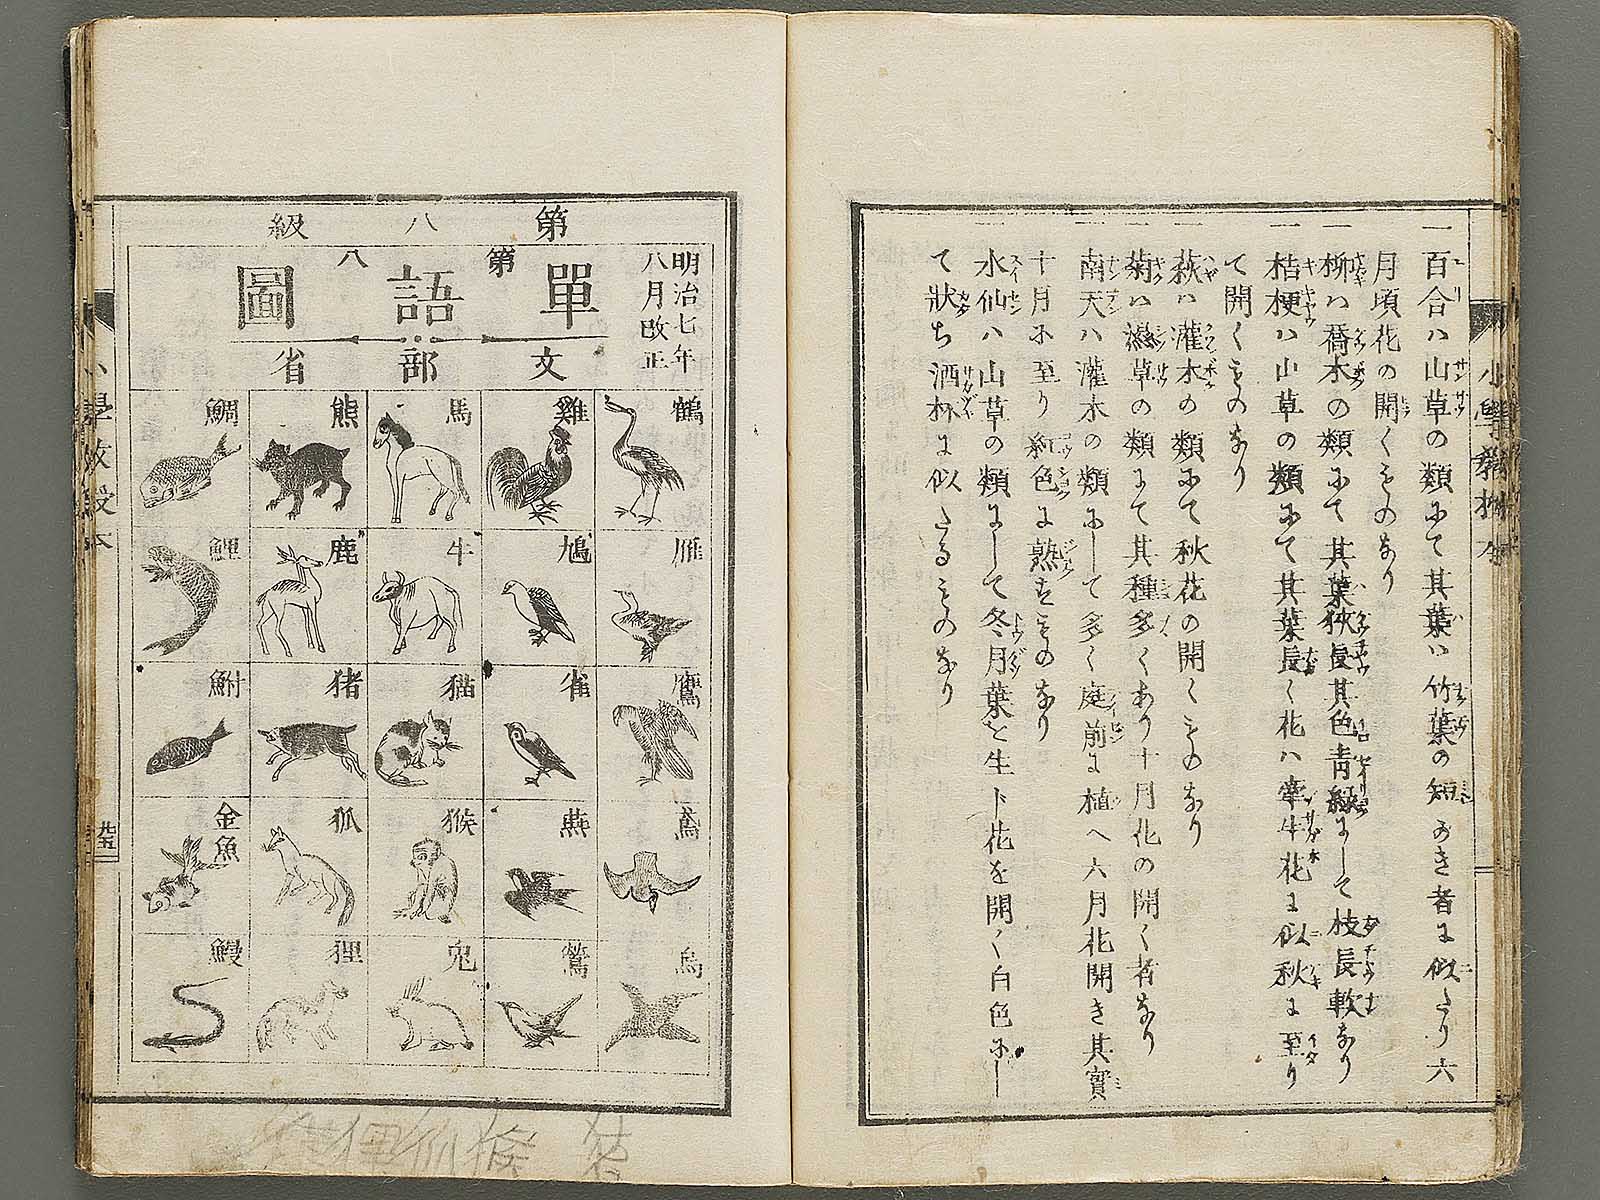 一百合ハ山草の類にて其葉ハ竹葉の短おき者に似たり六
月頃花の開くものなり
一柳ハ喬木の類にて其葉狹長其色青緑にして枝長軟なり
一桔梗ハ山草の類にて其葉長く花ハ牽牛花に似秋に至り
て開くものなり
一萩ハ灌木の類にて秋花の開くものなり
一菊ハ濕草の類にて其種多くあり十月花の開く者なり
一南天ハ灌木の類にして多く庭前に植へ六月花開き其實
十月に至り紅色に熟すものなり
一水仙ハ山草の類にして冬月葉を生ト花を開く白色にし
て狀ち酒杯に似たるものなり
第八級
明治七年
八月改正
第八
單語圖
文部省
鶴
雁
鷹
鳶
烏
雞
鳩
雀
燕
鶯
馬
牛
猫
猴
兎
熊
鹿
猪
狐
狸
鯛
鯉
鮒
金魚
鰻